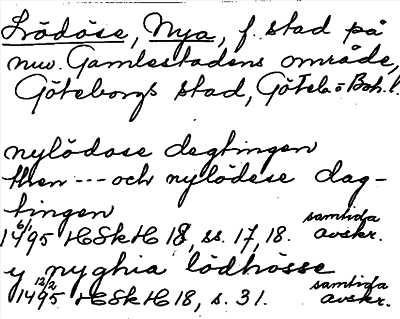 Lödöse, Nya, f. stad på
nuv. Gamlestadens område,
Göteborgs stad, Göteb. o Boh. l.
nylödose degtingen
then --- och nylödese dag-
tingen
6/1 1495 HSkH 18, ss. 17, 18. samtida avskr.
y nyghia lödhosse
12/2 1495 HSkH 18, s. 31. samtida avskr.